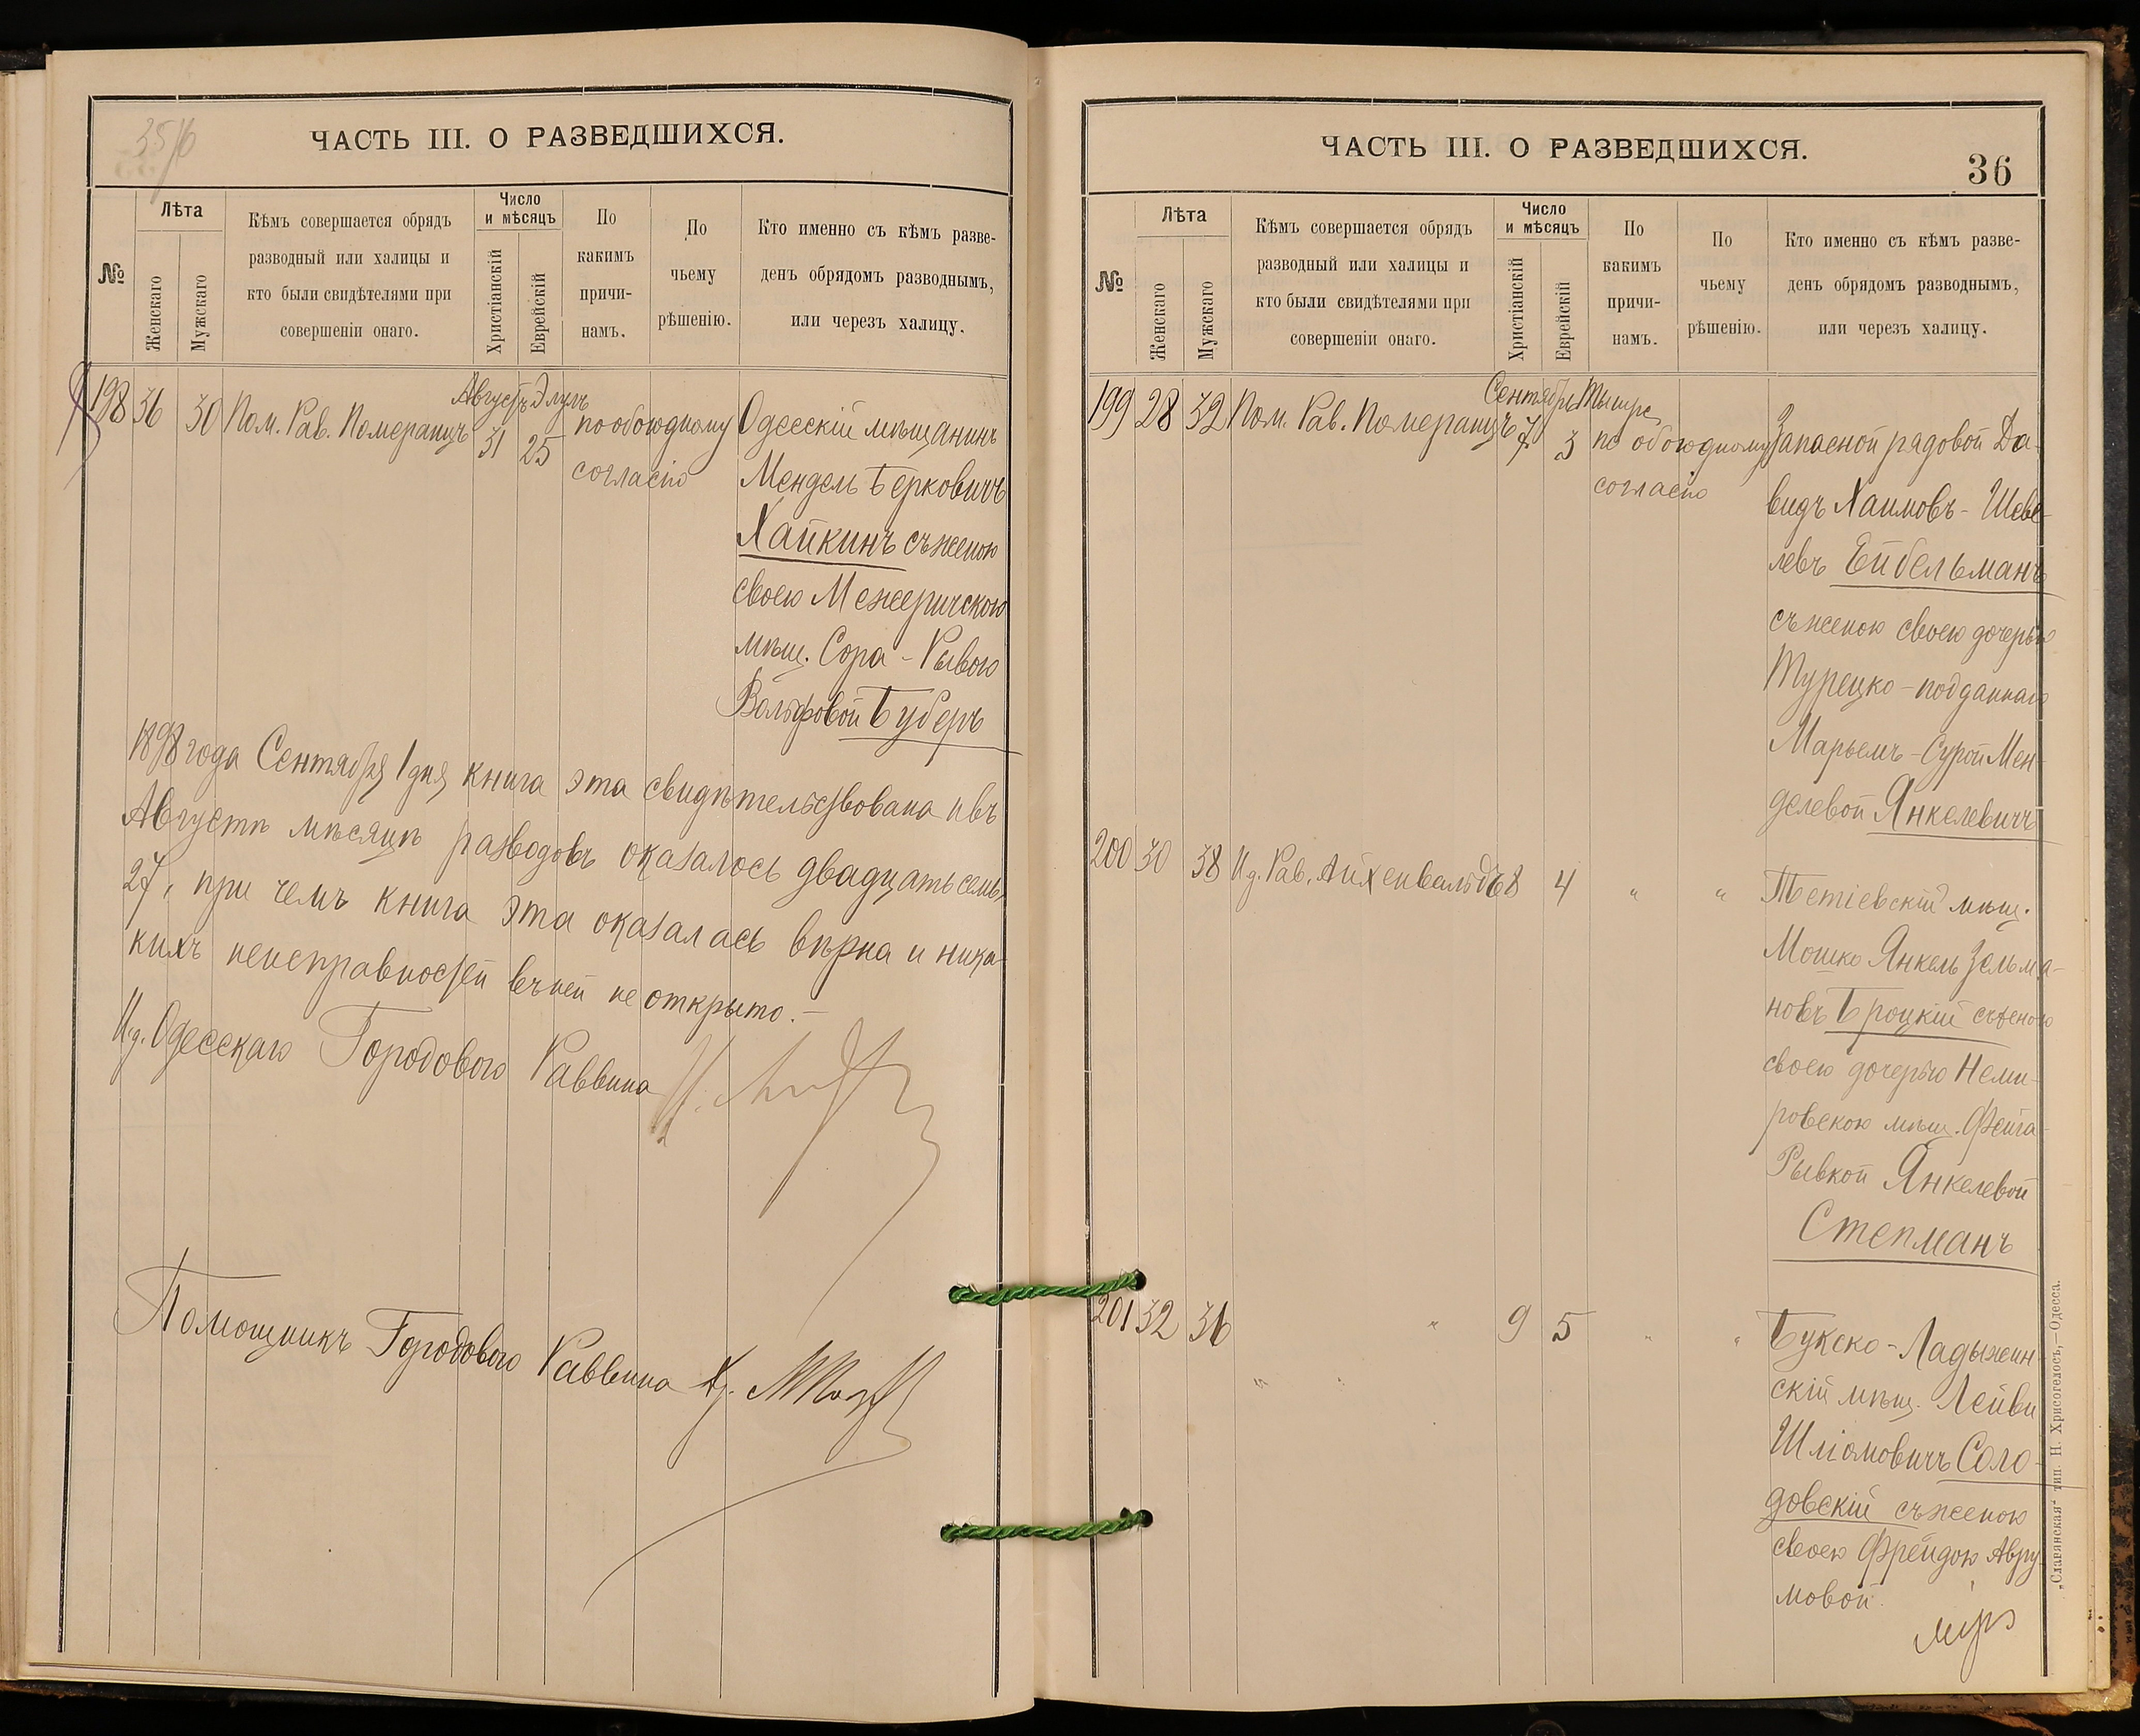 35/6
ЧАСТЬ III. О РАЗВЕДШИХСЯ.
№
Лѣта
Женскаго
Мужскаго
Кѣмъ совершается обрядъ
разводный или халицы и
кто были свидѣтелями при
совершеніи онаго.
Число
и мѣсяцъ
Христіанскій
Еврейскій
По
какимъ
причи-
намъ.
По
чьему
рѣшенію.
Кто именно съ кѣмъ разве-
денъ обрядомъ разводнымъ,
или черезъ халицу.
Августъ Элулъ
198 36 30 Пом. Рав. Померанцъ 31 25 по обоюдному
согласію
Одесскій мѣщанинъ
Мендель Берковичъ
Хайкинъ съ женою
своею Межеричскою
мѣщ. Сора-Рывою
Вольфовой Буберъ
1898 года Сентября 1 дня книга эта свидѣтельствована и въ
Августѣ мѣсяцѣ разводовъ оказалось двадцать семь,
27, при чемъ книга эта оказалась вѣрна и ника-
кихъ неисправностей въ ней не открыто.-
И. д. Одесскаго Городового Раввина
Помощникъ Городового Раввина
ЧАСТЬ III. О РАЗВЕДШИХСЯ.
36
№
Лѣта
Женскаго
Мужскаго
Кѣмъ совершается обрядъ
разводный или халицы и
кто были свидѣтелями при
совершеніи онаго.
Число
и мѣсяцъ
Христіанскій
Еврейскій
По
какимъ
причи-
намъ.
По
чьему
рѣшенію.
Кто именно съ кѣмъ разве-
денъ обрядомъ разводнымъ,
или черезъ халицу.
Сентябрь Тышре
199 28 32 Пом. Рав. Померанцъ 7 3 по обоюдному
согласію
Запасной рядовой Да-
видъ Хаимовъ-Шеве-
левъ Ейбельманъ
съ женою своею дочерью
Турецко-подданнаго
Марьемъ-Сурой Мен-
делевой Янкелевичъ
200 30 38 И д. Рав. Айхенвальдъ 8 4 " "
Тетіевскій мѣщ.
Мошко Янкель Зельма-
новъ Броцкій съ женою
своею дочерью Неми-
ровскою мѣщ. Фейга-
Рывкой Янкелевой
Степманъ
201 32 36 " 9 5 " "
Букско-Ладыжин-
скій мѣщ. Лейви
Шліомовичъ Соло-
довскій съ женою
своею Фрейдою Авру-
мовой.
„Славянская“ тип. Н. Хрисогелосъ,—Одесса.